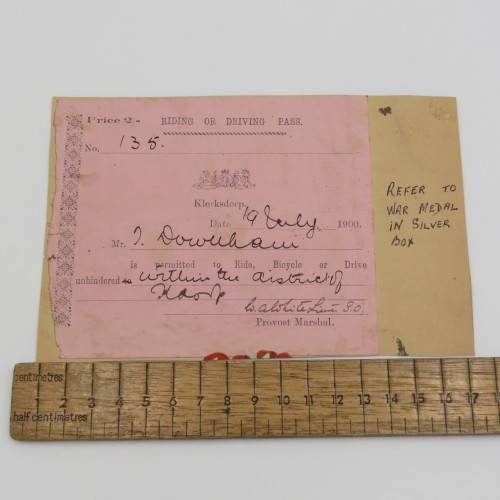 Price 2/-
RIDING OR DRIVING PASS.
No. 135.
Klerksdorp,
Date 19 July 1900.
Mr. J. Downham
is permitted to Ride, Bicycle or Drive
unhindered to within the district of
Provost Marshal.
REFER TO
WAR MEDAL
IN SILVER
BOX
centimetres
1 2 3 4 5 6 7 8 9 10 11 12 13 14 15 16 17
half centimetres